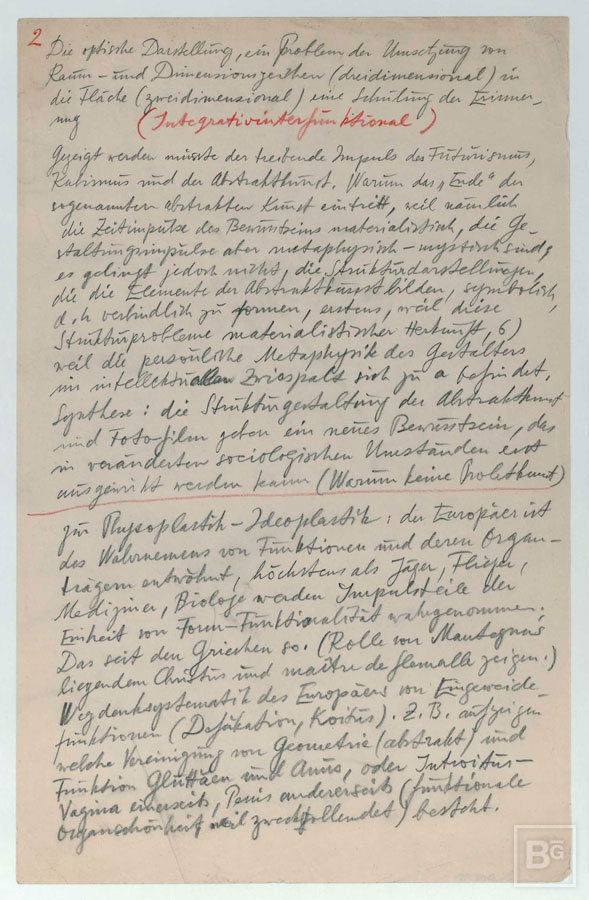 2
Die optische Darstellung, ein Problem der Umsetzung von
Raum- und Dimensionsgesehen (dreidimensional) in
die Fläche (zweidimensional) eine Schulung der Erinner-
ung (Integrativintersunktional)
Gezeigt werden müsste der treibende Impuls des Futurismus,
Kubismus und der Abstraktkunst. Warum das „Ende" der
sogenannten abstrakten Kunst eintritt, weil nämlich
die Zeitimpulse des Bewusstseins materialistisch, die Ge-
staltungsimpulse aber metaphysisch-mystisch sind,
es gelingt jedoch nicht, die Strukturdarstellungen,
die die Elemente der Abstraktkunst bilden, symbolisch,
d.h verbindlich zu formen, erstens, weil diese
Strukturprobleme materialistischer Herkunft, b)
weil die persönliche Metaphysik des Gestalters
im intellektuallen Zwiespalt sich zu a befindet.
Synthese: die Strukturgestaltung der Abstraktkunst
und Foto-film geben ein neues Bewusstsein, das
in veränderten sociologischen Umständen erst
ausgewirkt werden kann (Warum keine Proletkunst)
zu Physoplastik-Ideoplastik: der Europäer ist
des Wahrnemens von Funktionen und deren Organ-
trägern entwöhnt, höchstens als Jäger, Flieger,
Mediziner, Biologe werden Impulsteile der
Einheit von Form-Funktionalität wahrgenommen.
Das seit den Griechen so. (Rolle von Mantegnas
liegendem Christus und maître de flemalle zeigen.)
Wegdenksystematik des Europäers von Eingeweide-
funktionen (Defäkation, Koitus). Z.B. aufzeigen
welche Vereinigung von Geometrie (abstrakt) und
Funktion Gluttäen und Anus, oder Introitus-
Vagina einerseits, Penis andererseits (funktionale
Organschönheit, weil zweckvollendet) besteht.
BG